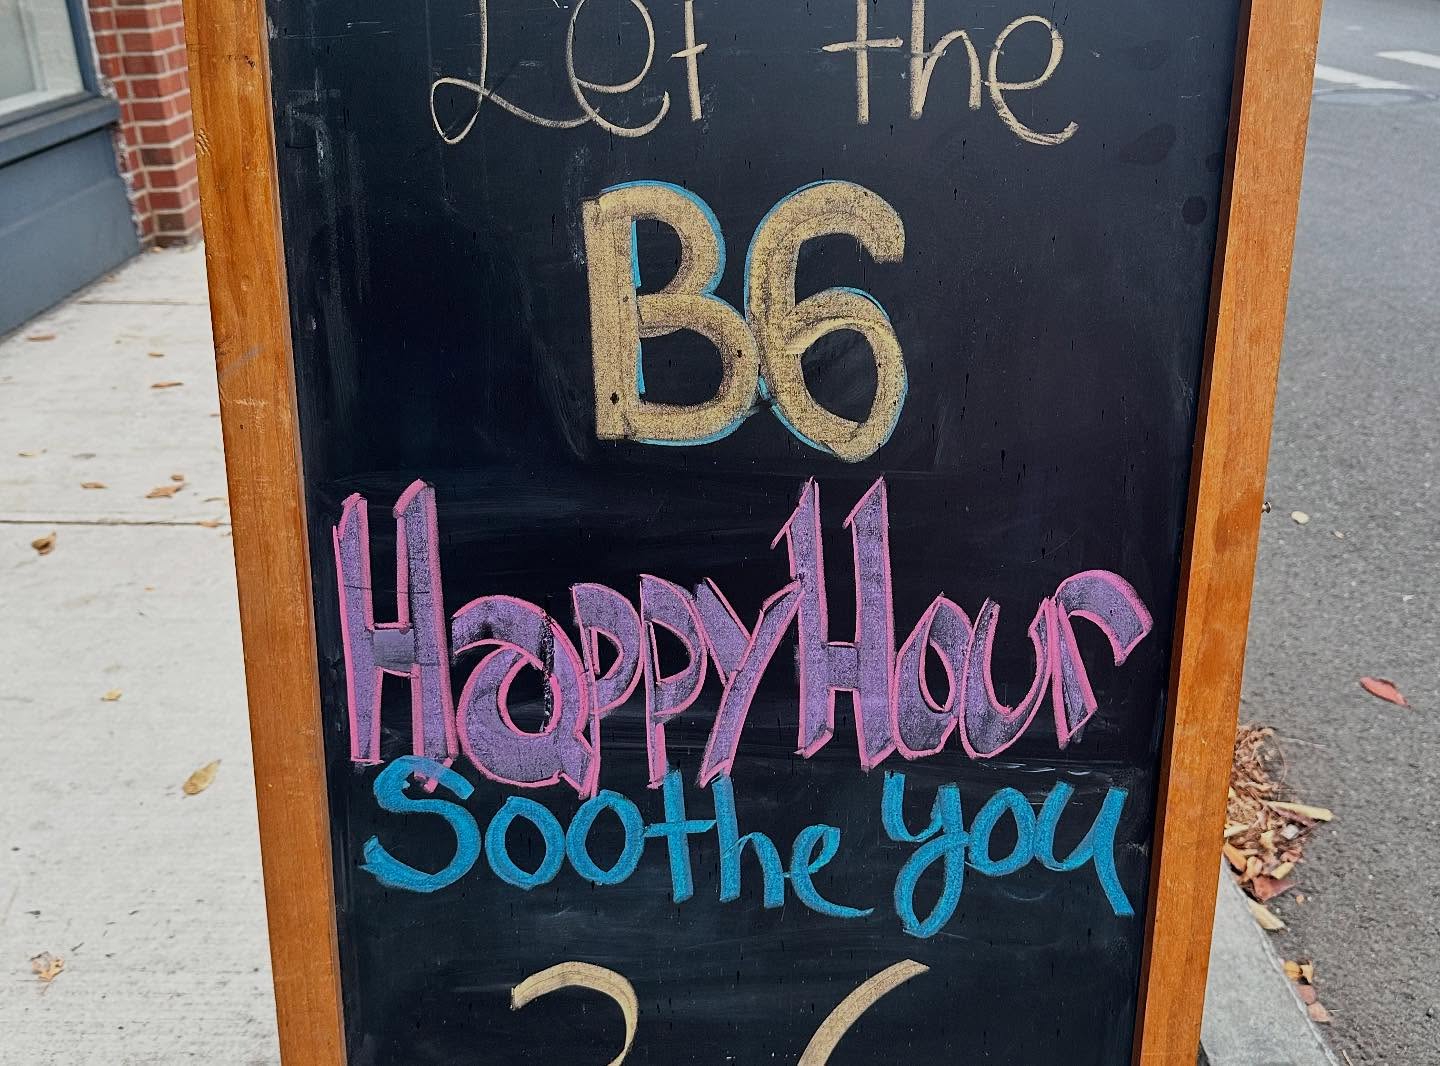 Let the
B6
HappyHour
Soothe you